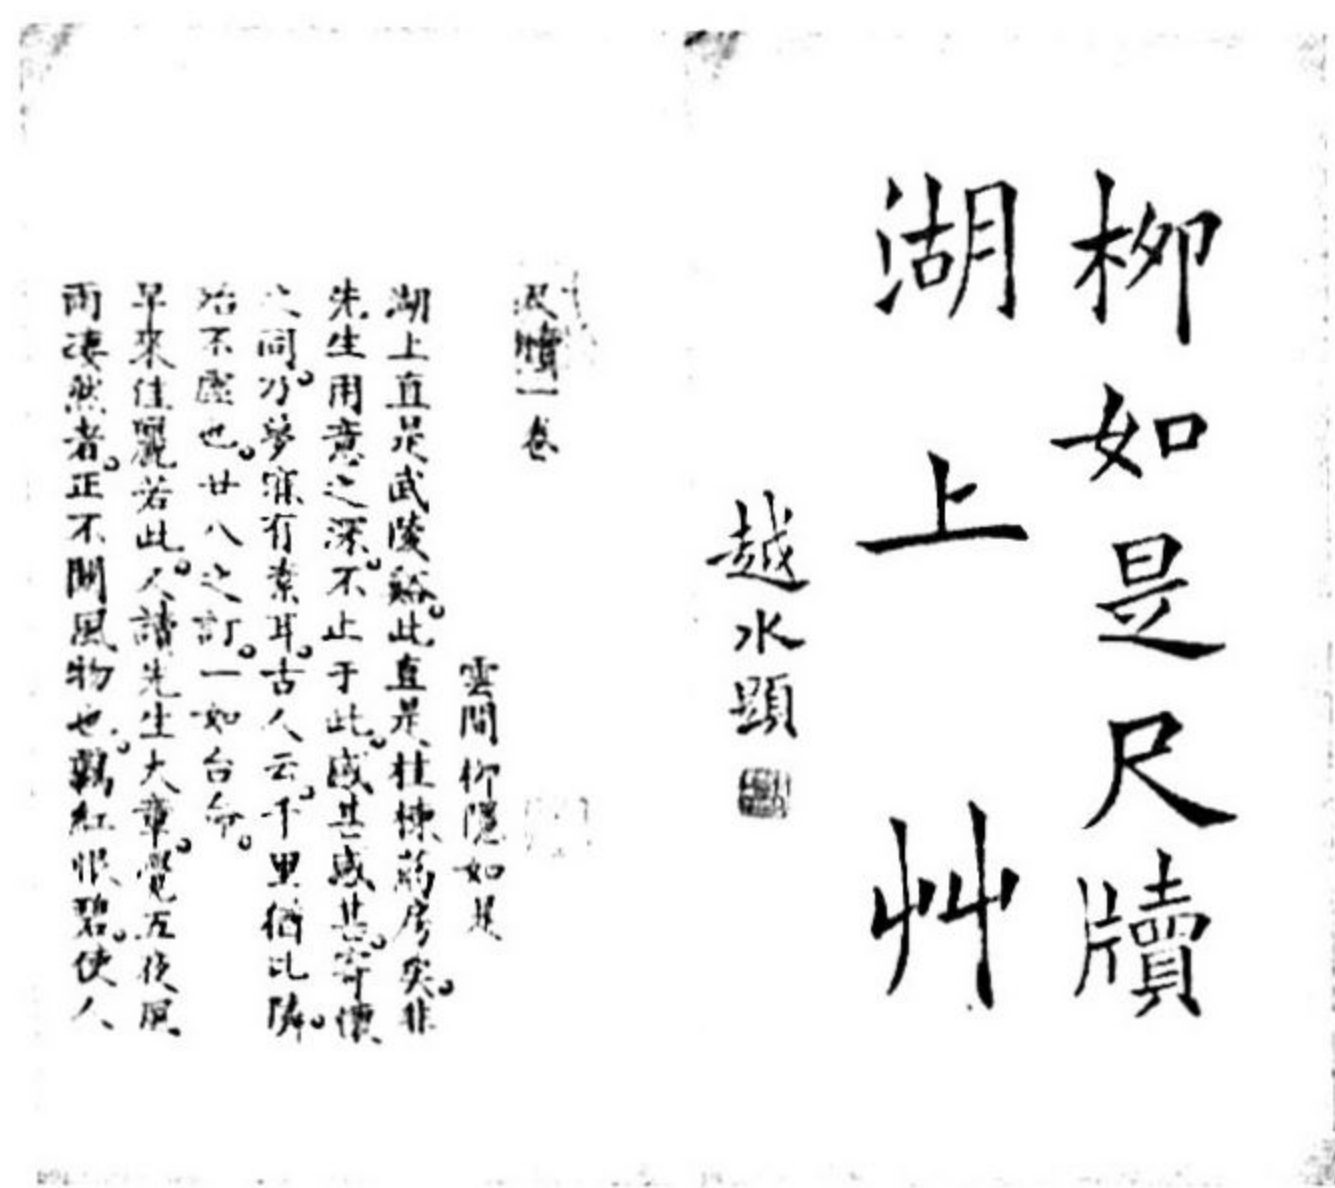 柳如是尺牘
湖上艸
越水題
尺牘一卷
雲間柳隱如是
湖上直是武陵谿。此直是桂棟葯房矣。非
先生用意之深。不止于此。感甚感甚。寄懷
之同。乃夢寐有素耳。古人云。千里猶比隣。
殆不虛也。廿八之訂。一如台命。
早來佳麗若此。人讀先生大章。覺五夜風
雨淒然者。正不關風物也。羈紅恨碧。使人